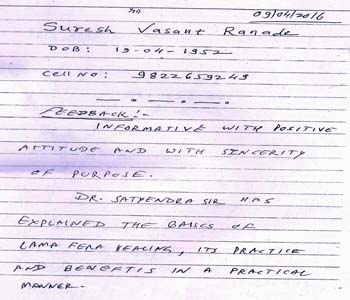 09/04/2016
Suresh Vasant Ranade
DOB: 19-04-1952
Cell No: 9822659249
FEEDBACK :-
INFORMATIVE WITH POSITIVE
ATTITUDE AND WITH SINCERITY
OF PURPOSE.
DR. SATYENDRA SIR HAS
EXPLAINED THE BASICS OF
LAMA FERA HEALING, ITS PRACTICE
AND BENEFTIS IN A PRACTICAL
MANNER.